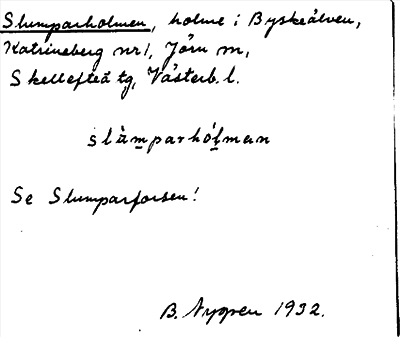 Slumparholmen, holme i Byskeälven,
Katrineberg nr 1, Jörn sn,
Skellefteå tg, Västerb. l.
slàm̱parhóḻmɐn
Se Slumparforsen!
B. Nygren 1932.